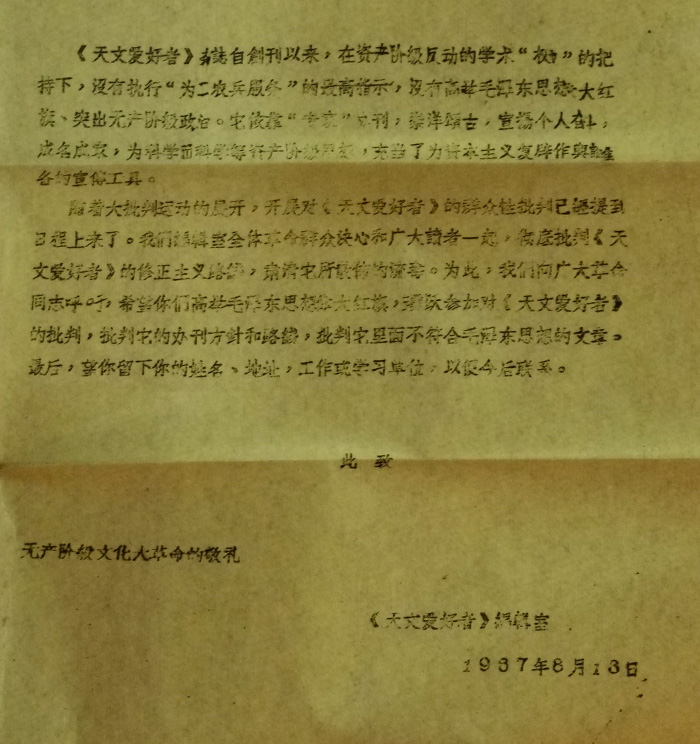 《天文爱好者》杂誌自創刊以来，在资产阶级反动的学术“权”的把
持下，沒有执行“为工农兵服务”的最高指示，沒有高举毛泽东思想大红
旗、突出无产阶级政治。它依靠“专家”办刊，崇洋頌古，宣扬个人奋斗，
成名成家，为科学而科学等资产阶级思想，充当了为资本主义复辟作舆論准
备的宣傳工具。
随着大批判运动的展开，开展对《天文爱好者》的群众性批判已經提到
日程上来了。我们編輯室全体革命群众决心和广大讀者一起，彻底批判《天
文爱好者》的修正主义路綫，肅清它所散佈的流毒。为此，我们向广大革命
同志呼吁，希望你们高举毛泽东思想伟大红旗，积极参加对《天文爱好者》
的批判，批判它的办刊方針和路綫，批判它里面不符合毛泽东思想的文章。
最后，望你留下你的姓名、地址，工作或学习单位，以便今后联系。
此致
无产阶级文化大革命的敬礼
《天文爱好者》編輯室
1967年8月13日